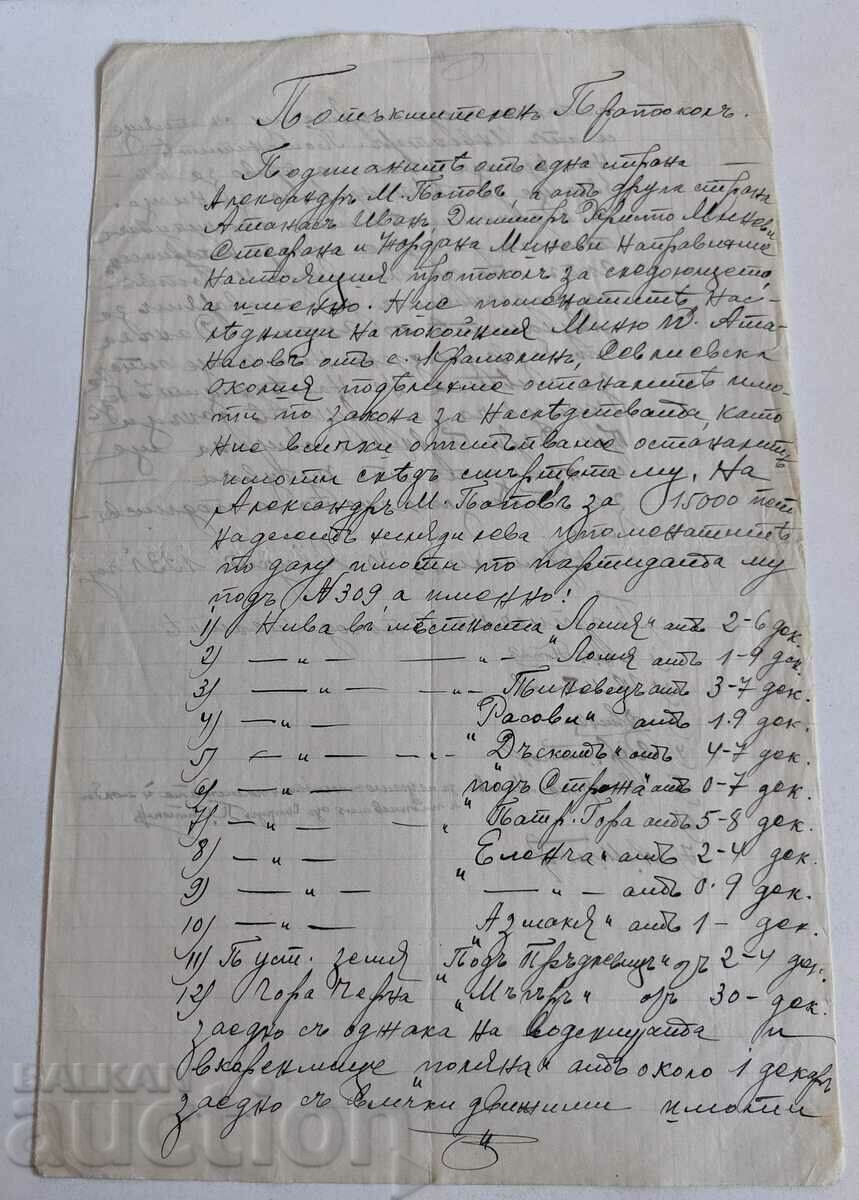 Потъкмителенъ Протоколъ.
Подписанитѣ отъ една страна
Александръ М. Поповъ, а отъ друга страна
Атанасъ Иван, Димитръ Христо Минови
Стефана и Йордана Миневи направихме
настоящия протоколъ за следоющето,
а именно. Ние поменатитѣ нас-
лѣдници на покойния Миню П. Ата-
насовъ отъ с. Крамолин, Севлиевска
околия подѣлихме останалитѣ имо-
ти по закона за наследствата, като
ние всички отстѫпваме останалитѣ
имоти следъ смъртьта му. На
Александръ М. Поповъ за 15000 пет
надесеть хиляди лева упоменатитѣ
по долу имоти по партидата му
подъ №309, а именно:
1) Нива въ мѣстноста "Ломя" отъ 2-6 дек.
2) — " — — " — "Ломя отъ 1-9 дек.
3) — " — — " — Пъновецъ отъ 3-7 дек.
4) — " — "Расови" отъ 1.9 дек.
5) — " — — " — "Дъскотъ" отъ 4-7 дек.
6) — " — "подъ Стража" отъ 0-7 дек.
7) — " — "Патр. Гора отъ 5-8 дек.
8) — " — "Еленча" отъ 2-4 дек.
9) — " — " — " — отъ 0.9 дек.
10) — " — "Азмакя" отъ 1 — дек.
11) Пуст. земя "Подъ " отъ 2-4 дек.
12) Гора Черна "Мъгъръ" отъ 30 - дек.
заедно съ оджака на воденицата и
вкоренище "поляна" отъ около 1 декаръ
заедно съ всички движими имоти
BALKAN
auction